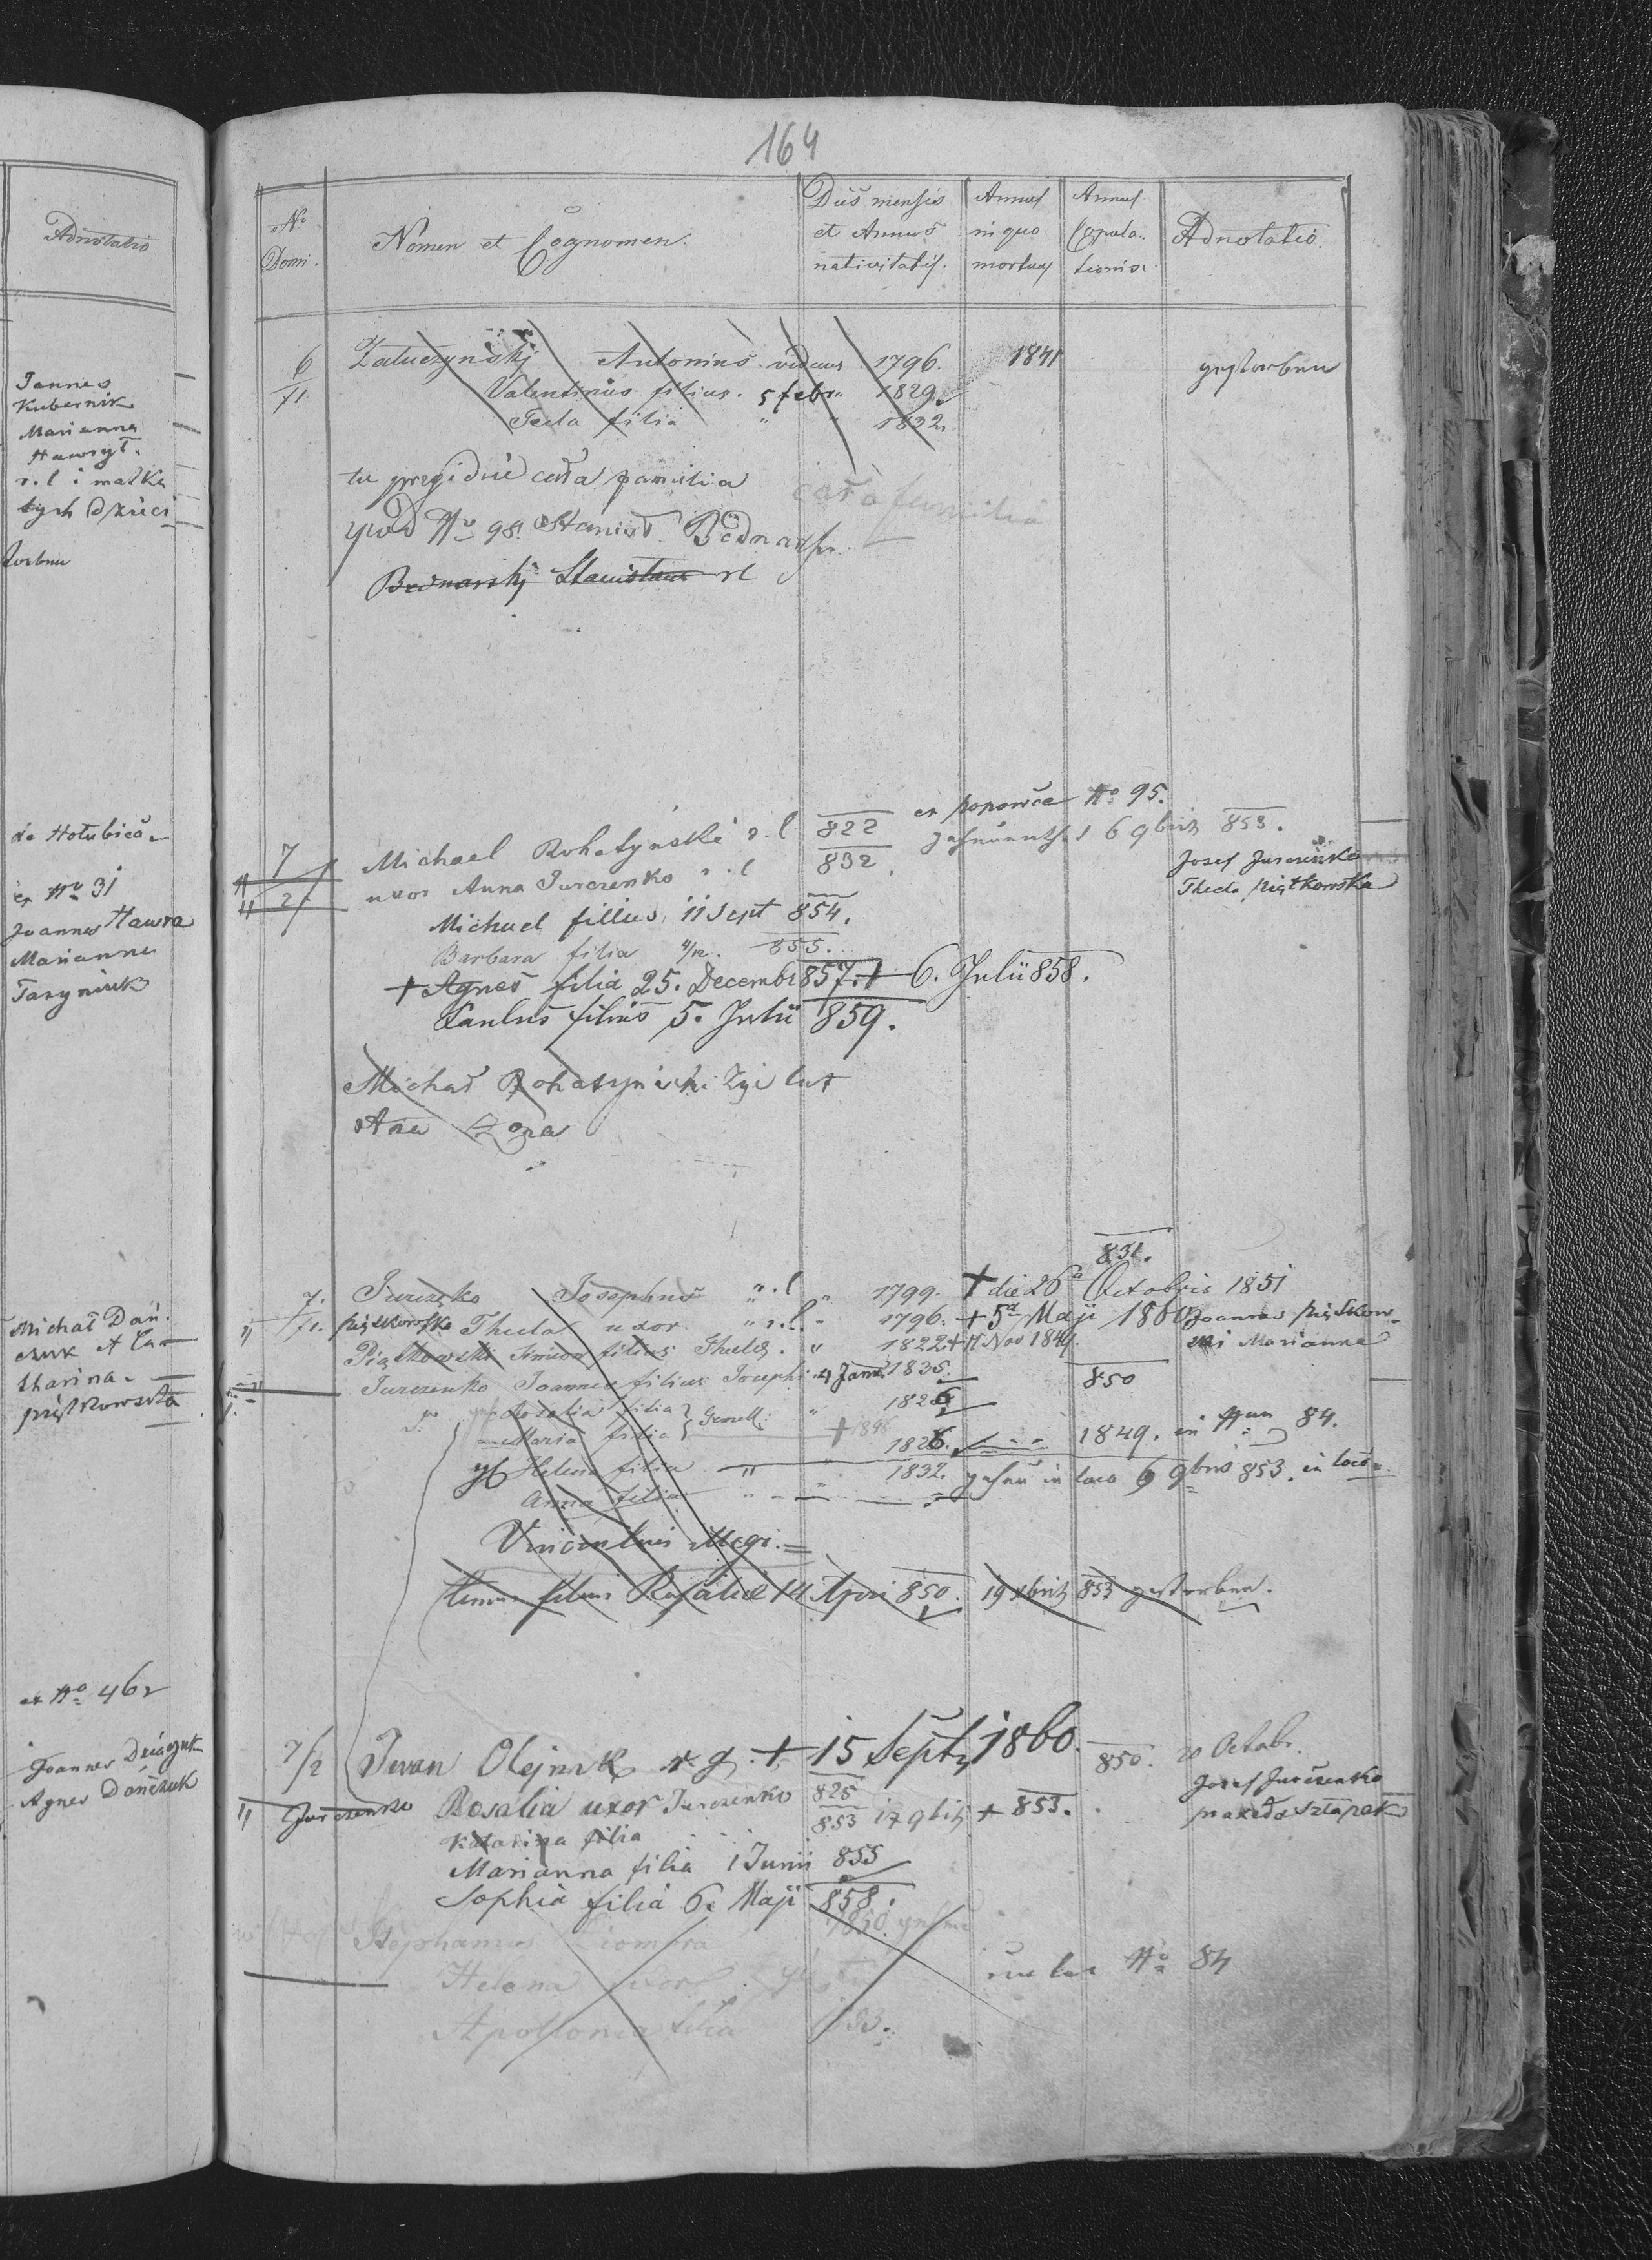 Adnotatio
Joannes
Kubernik
Marianna
Hawrył.
r. l i matka
tych dzieci
de Hołubica
ex No 31
Joannes Hawra
Marianna
Tasyniuk
Michał Dań.
czuk & Ca
tharina
piątkowska
ex No 462
Joannes
Agnes Dańczuk
164
No Domi.
Nomen et Cognomen.
Dies mensis et Annus nativitatis.
Annus in quo mortuus
Annus Copulationis
Adnotatio.
6 Zaluczynskj Antonius viduus 1796. 1841 gestorben
/1. Valentinus filius. 5 febr. 1829.
Tecla filia " " 1832.
tu przyidzie cała familia
cała familia
pod No 98. Stanisł. Bednarsk.
Bednarskj Stanislaus rl
ex popowce No 95.
7 Michael Rohatyński r. l 822 1 6 9bris 853.
/2 uxor Anna Jurczenko r. l 832. Josef Jurczenko
Thecla piątkowska
Michael filius 11 Sept 854.
Barbara filia 4/12. 855.
+ Agnes filia 25. Decembr 857. + 6. Julii 858.
Paulus filius 5. Julii 859.
Michał Rohatyński
Ana Zona
831.
7. Jurczeko Josephus r. l " 1799. + die 26a Octobris 1851
/1. piątkowska Thecla uxor " r. l. " 1796. + 5a Maji 1860 Joannes piątkow-
Piątkowski Simeon filius Theclæ. " 1822 + 11 Nov 1849. ski Marianna
Jurczenko Joannes filius Josephi 4 Janu 1835. 850
Rosalia filia } Gemell: " 1826
Maria filia } + 1846 1826. 1849. in Num 84.
Helena filia " " 1832. in loco 6 9bris 853. in loco.
Anna filia " " "
Vincentius
filius Rosaliæ 14 Apri 850. 19 xbris 853 gestorben.
7/2 Iwan Olejnik r. g. + 15 Septr 1860. 850. 20 Octobr.
Josef Jurczenko
Jurczenko Rosalia uxor Jurczenko 825 praxeda Sztapak
853 17 9bris + 853.
Katarina filia
Marianna filia 1 Junii 855
Sophia filia 6. Maji 858.
Stephanus 1850.
Helena uxor No 84
Apollonia filia 853.